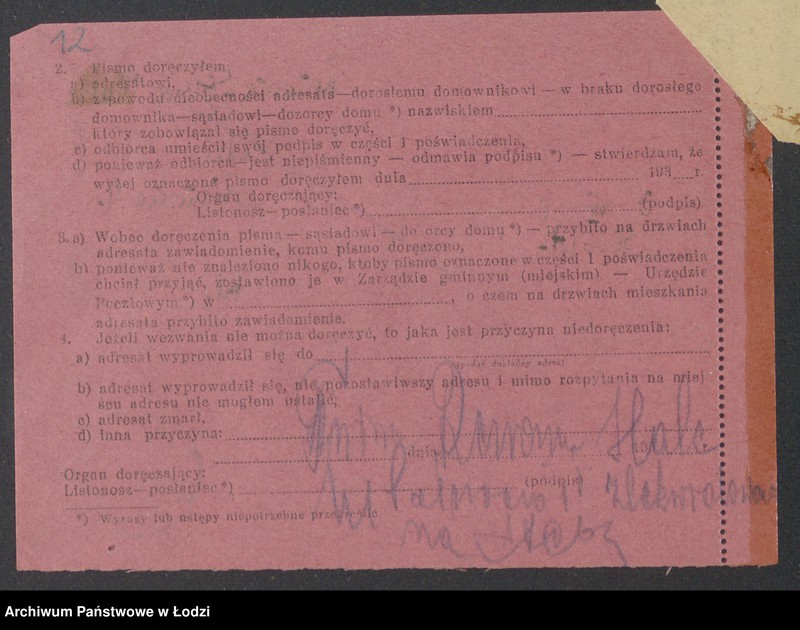 12
2. Pismo doręczyłem:
a) adresatowi,
b) z powodu nieobecności adresata—dorosłemu domownikowi — w braku dorosłego
domownika—sąsiadowi—dozorcy domu *) nazwiskiem
który zobowiązał się pismo doręczyć,
c) odbiorca umieścił swój podpis w części 1 poświadczenia,
d) ponieważ odbiorca—jest niepiśmienny — odmawia podpisu *) — stwierdzam, że
wyżej oznaczone pismo doręczyłem dnia 193 r.
Organ doręczający:
Listonosz—posłaniec *) (podpis)
3. a) Wobec doręczenia pisma—sąsiadowi—dozorcy domu *) — przybito na drzwiach
adresata zawiadomienie, komu pismo doręczono,
b) ponieważ nie znaleziono nikogo, ktoby pismo oznaczone w części 1 poświadczenia
chciał przyjąć, zostawiono je w Zarządzie gminnym (miejskim) — Urzędzie
Pocztowym *) w , o czem na drzwiach mieszkania
adresata przybito zawiadomienie.
4. Jeżeli wezwania nie można doręczyć, to jaka jest przyczyna niedoręczenia:
a) adresat wyprowadził się do
(podać dokładny adres)
b) adresat wyprowadził się, nie pozostawiwszy adresu i mimo rozpytania na miej
scu adresu nie mogłem ustalić,
c) adresat zmarł,
d) inna przyczyna:
dnia
Organ doręczający:
Listonosz—posłaniec *) (podpis)
*) Wyrazy lub ustępy niepotrzebne przekreślić
na
Archiwum Państwowe w Łodzi